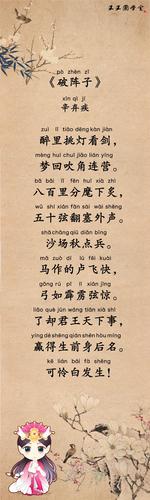 王王国学堂
pò zhèn zǐ
《破阵子》
xīn qì jí
辛弃疾
zuì lǐ tiǎo dēng kàn jiàn
醉里挑灯看剑,
mèng huí chuī jiǎo lián yíng
梦回吹角连营。
bā bǎi lǐ fēn huī xià zhì
八百里分麾下炙,
wǔ shí xián fān sài wài shēng
五十弦翻塞外声。
shā chǎng qiū diǎn bīng
沙场秋点兵。
mǎ zuò dí lú fēi kuài
马作的卢飞快,
gōng rú pī lì xián jīng
弓如霹雳弦惊。
liǎo què jūn wáng tiān xià shì
了却君王天下事,
yíng dé shēng qián shēn hòu míng
赢得生前身后名。
kě lián bái fà shēng
可怜白发生!